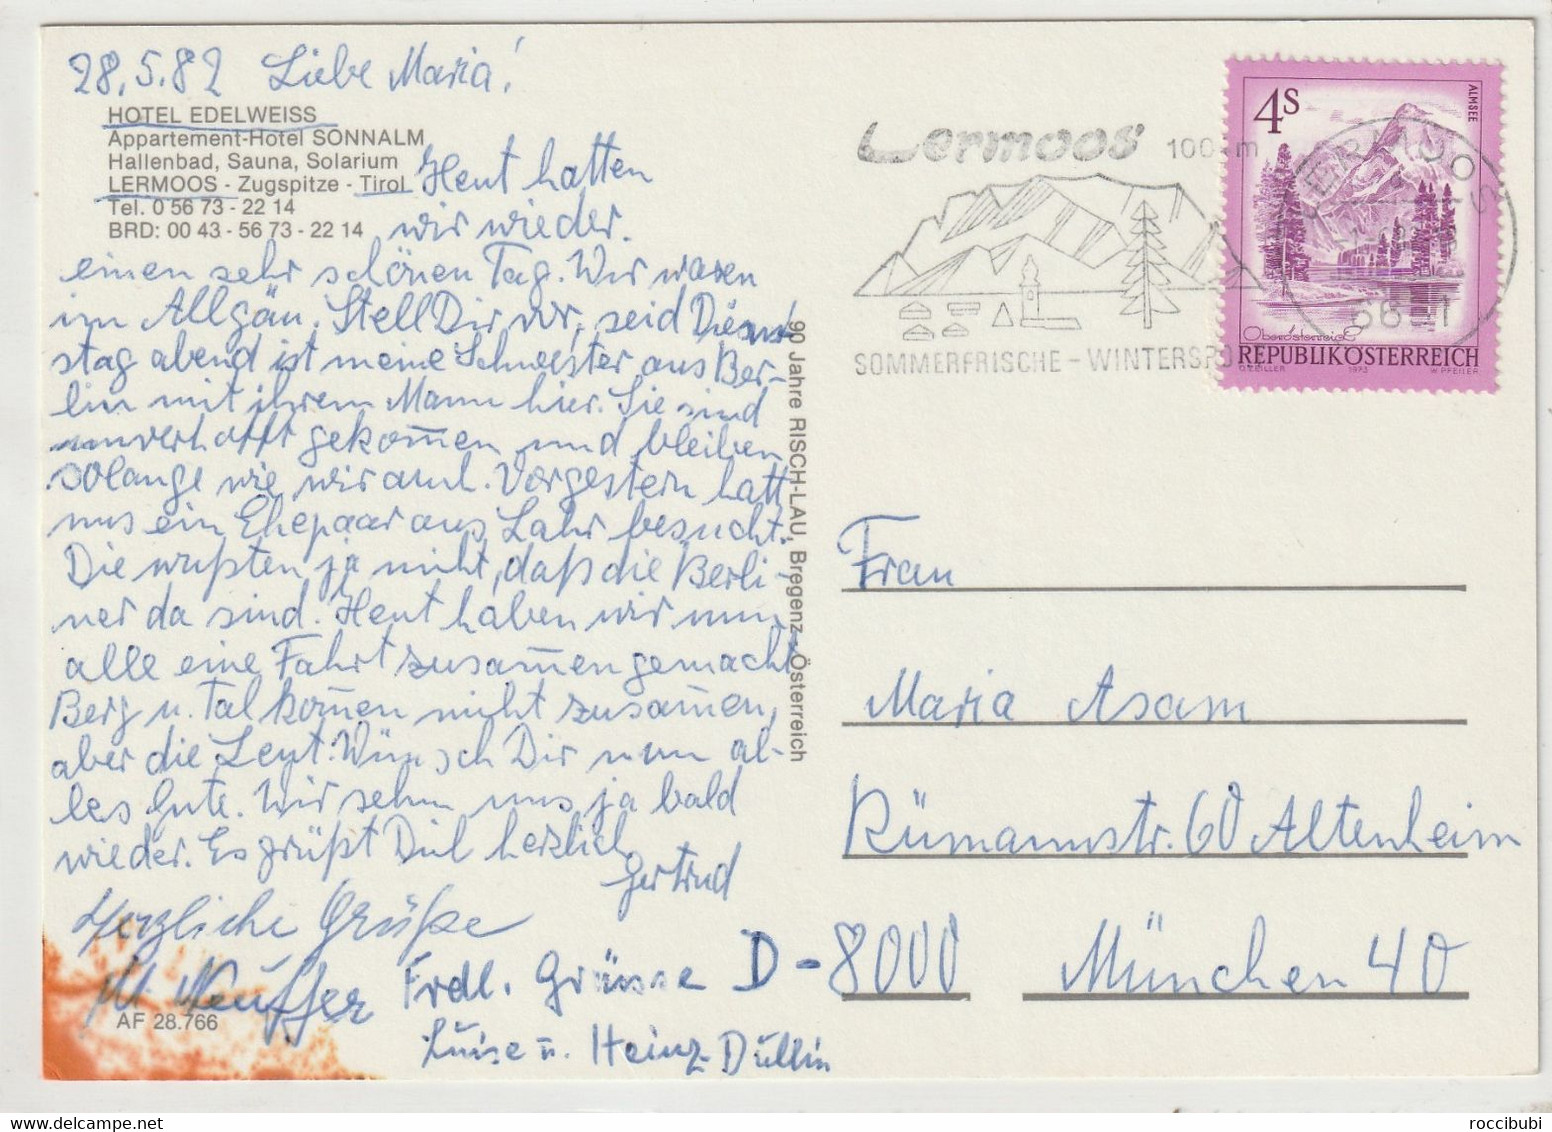 28.5.82 Liebe Maria!
HOTEL EDELWEISS
Appartement-Hotel SONNALM
Hallenbad, Sauna, Solarium
LERMOOS - Zugspitze - Tirol
Tel. 0 56 73 - 22 14
BRD: 00 43 - 56 73 - 22 14
Heut hatten
wir wieder
einen sehr schönen Tag. Wir waren
im Allgäu. Stell Dir vor, seid Diens-
stag abend ist meine Schwester aus Ber-
lin mit ihrem Mann hier. Sie sind
unverhofft gekom̄en und bleiben
solange wie wir auch. Vorgestern hatt
uns ein Ehepaar aus Lahr besucht.
Die wußten ja nicht, daß die Berli-
ner da sind. Heut haben wir nun
alle eine Fahrt zusam̄en gemacht
Berg u. Tal kom̄en nicht zusam̄en,
aber die Leut. Wünsch Dir nun al-
les Gute. Wir sehn uns ja bald
wieder. Es grüßt Dich herzlich
Gertrud
Herzliche Grüße
M. Neuffer
Frdl. Grüsse
Luise u. Heinz Düllin
AF 28.766
90 Jahre RISCH-LAU, Bregenz, Österreich
Lermoos 1004m
SOMMERFRISCHE - WINTERSPO
LERMOOS
4S
ALMSEE
Oberösterreich
REPUBLIK ÖSTERREICH
O.ZEILLER 1973 W. PFEILER
Frau
Maria Asam
Rümannstr. 60 Altenheim
D - 8000 München 40
roccibubi